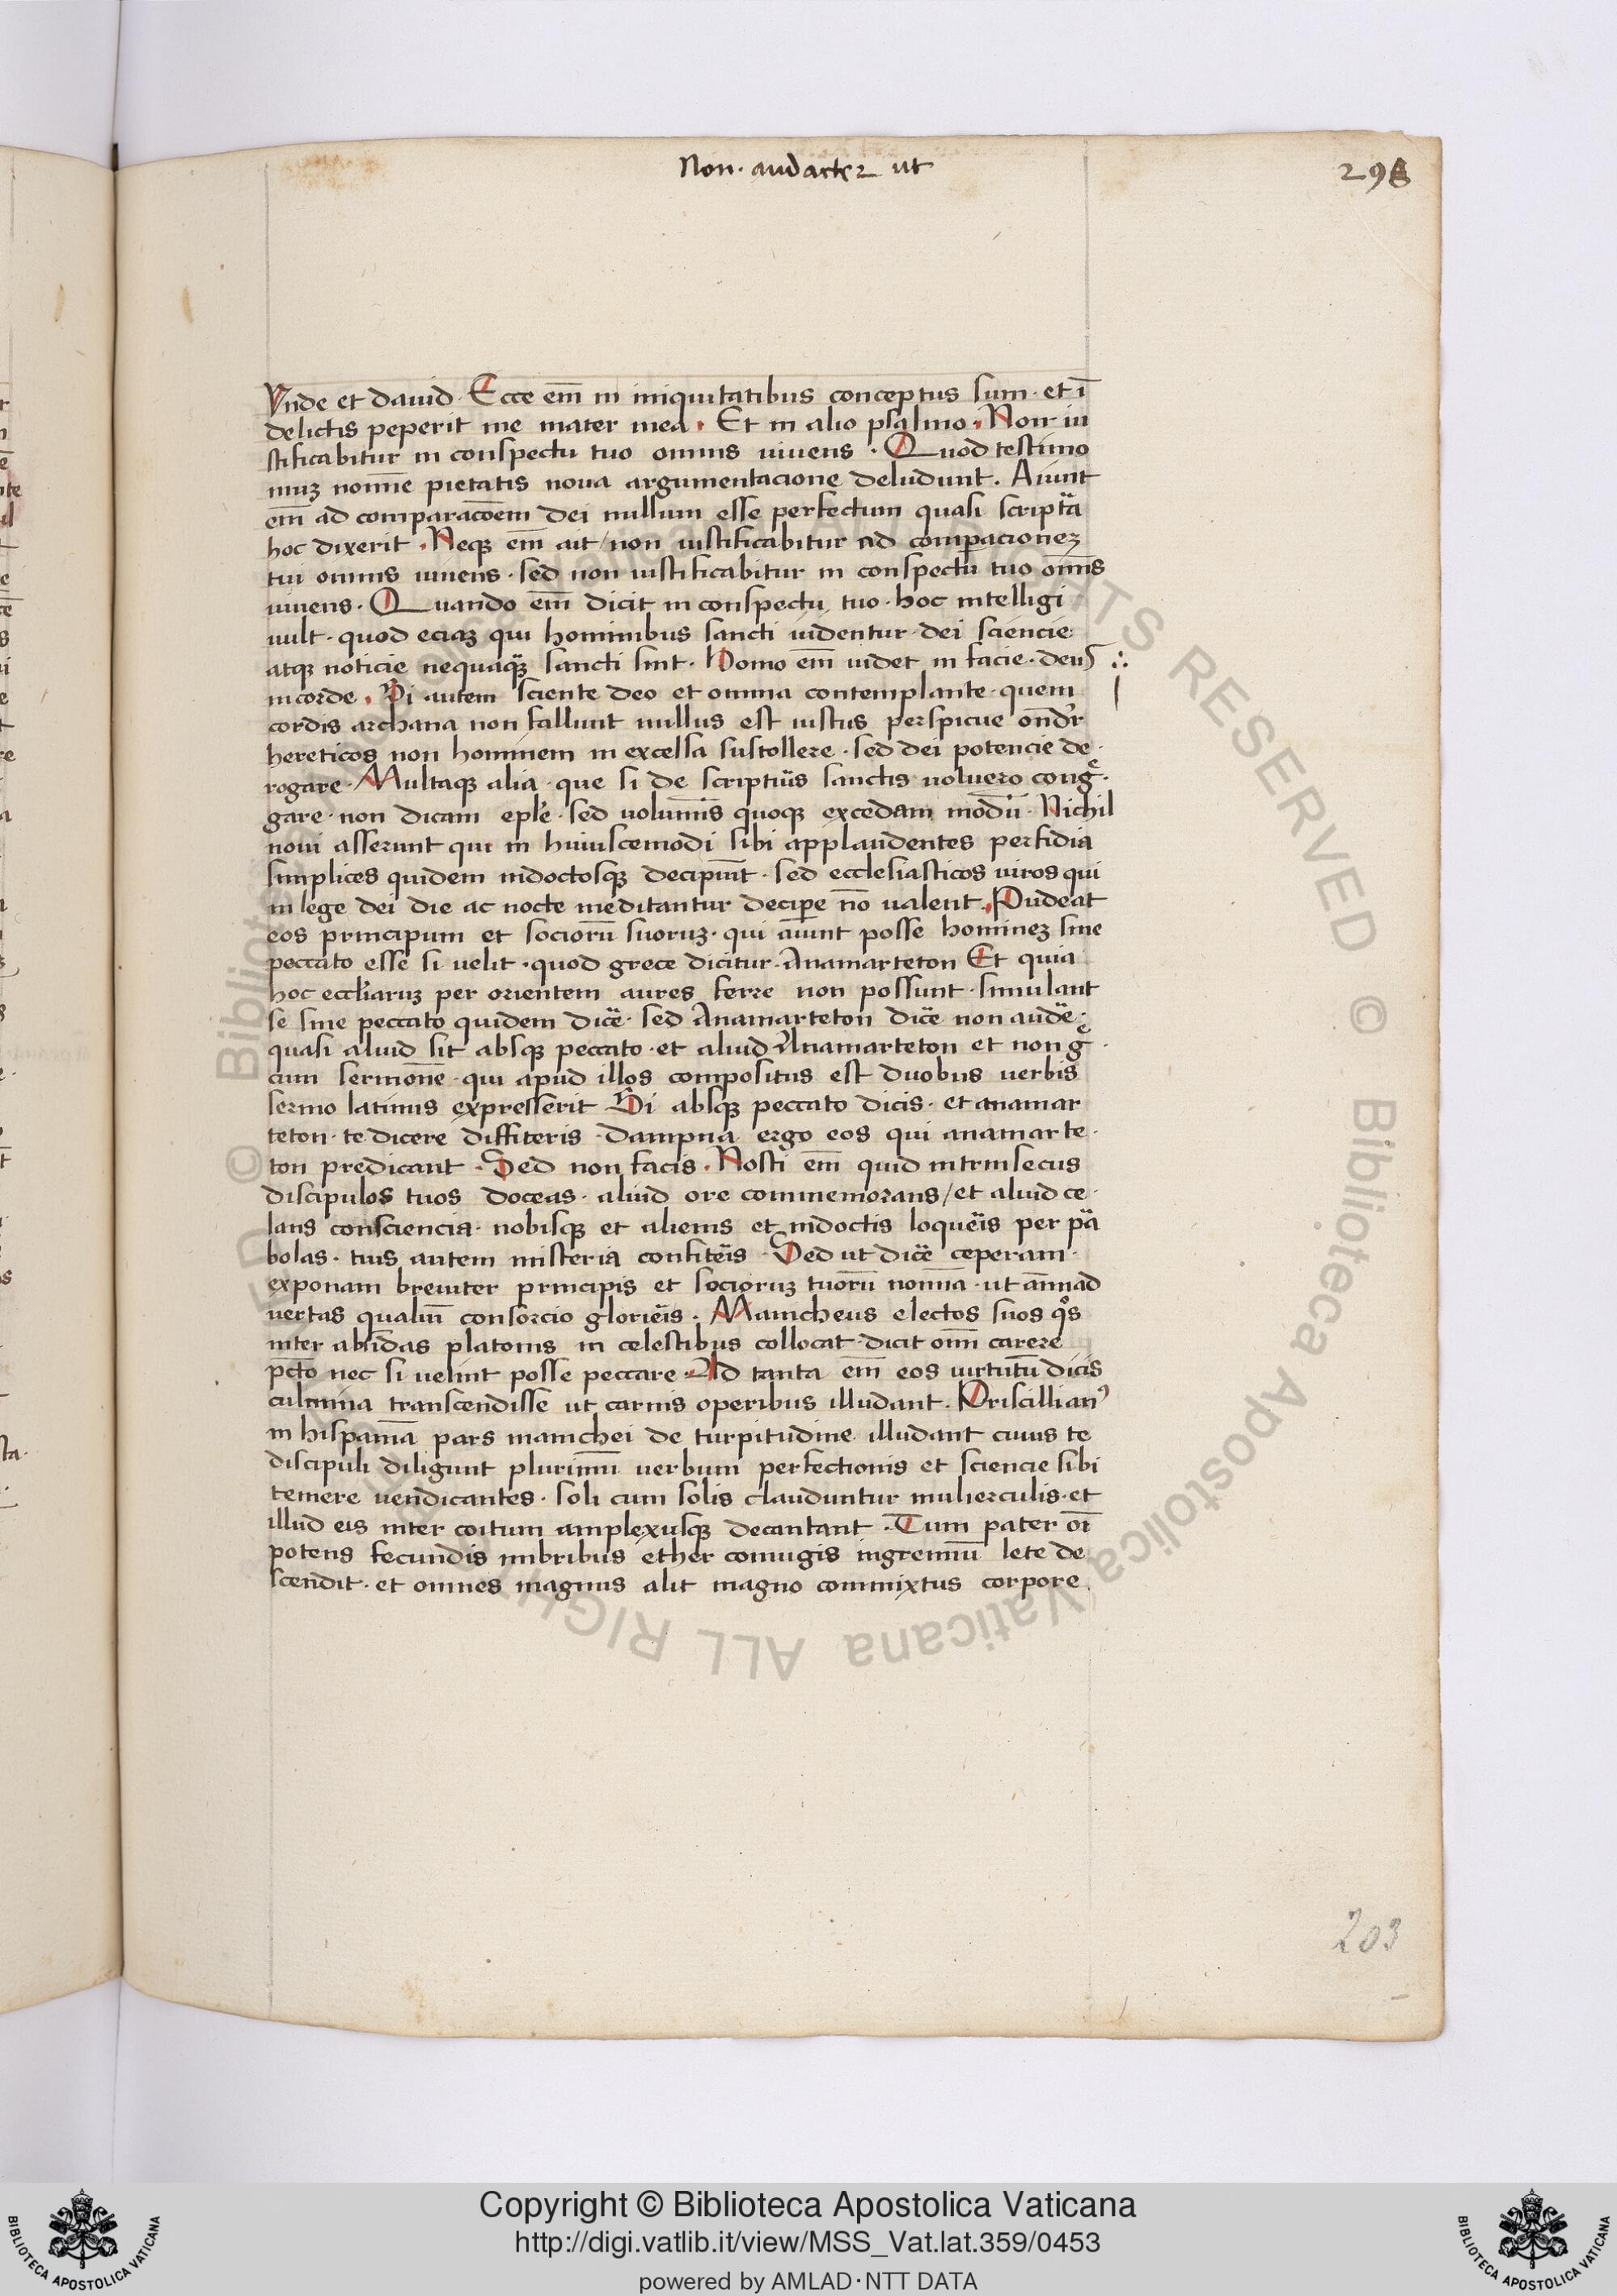 Non · audacter ut
298
Vnde et dauid · Ecce em̅ in iniquitatibus conceptus sum · et ı̅
delictis peperit me mater mea · Et in alio psalmo · Non iu
stificabitur in conspectu tuo omnis uiuens · Quod testimo
niuꝫ nomı̅e pietatis noua argumentacione deludunt . Aiunt
em̅ ad comparaco̅em dei nullum esse perfectum quasi scriptᷓa
hoc dixerit · Neqꝫ em̅ ait / non iustificabitur ad comꝑacioneꝫ
tui omnis uiuens · sed non iustificabitur in conspectu tuo om̅is
uiuens · Quando em̅ dicit in conspectu tuo · hoc intelligi
uult · quod eciaꝫ qui hominibus sancti uidentur dei sciencie
atqꝫ noticie nequaqᷓꝫ sancti sint · Homo em̅ uidet in facie · deus ∴
in corde · Si autem sciente deo et omnia contemplante · quem
cordis archana non fallunt nullus est iustus perspicue ond̅r
hereticos non hominem in excelsa sustollere · sed dei potencie de ·
rogare · Multaqꝫ alia · que si de scriptu̅s sanctis uoluero congͤ ·
gare · non dicam ep̅le · sed uolumı̅s quoqꝫ excedam modu̅ · Nichil
noui asserunt qui in huiuscemodi sibi applaudentes perfidia
simplices quidem indoctosqꝫ decipiu̅t · sed ecclesiasticos uiros qui
in lege dei die ac nocte meditantur deciꝑe no̅ ualent · Pudeat
eos principum et socioru̅ suoruꝫ · qui aiunt posse homineꝫ sine
peccato esse si uelit · quod grece dicitur · Anamarteton Et quia
hoc eccl̅iaruꝫ per orientem aures ferre non possunt · simulant
se sine peccato quidem dic̅e · sed Anamarteton dic̅e non aude̅ ·
quasi aliud sit absqꝫ peccato · et aliud Anamarteton et non gͤ ·
cum sermone̅ · qui apud illos compositus est duobus uerbis
sermo latinus expresserit Si absqꝫ peccato dicis · et anamar
teton · te dicere diffiteris · Dampna ergo eos qui anamarte ·
ton predicant · Sed non facis · Nosti em̅ quid intrinsecus
discipulos tuos doceas · aliud ore commemorans / et aliud ce ·
lans consciencia · nobisqꝫ et alienis et indoctis loque̅is per pᷓa
bolas · tuis autem misteria confite̅is · Sed ut dic̅e ceperam ·
exponam breuiter principis et sociorꝫ tuoru̅ nomı̅a · ut an̅mad
uertas qualiu̅ consorcio glorie̅is · Manicheus electos suos qͦs
inter absidas platonis in celestibus collocat · dicit om̅i carere
pct̅o nec si uelint posse peccare · Ad tanta em̅ eos uirtutu̅ dicis
culmina transcendisse ut carnis operibus illudant · Priscillianꝰ
in hispania̅ pars manichei de turpitudine illudant cuius te
discipuli diligunt plurimu̅ uerbum perfectionis et sciencie sibi
temere uendicantes · soli cum solis clauduntur mulierculis · et
illud eis inter coitum amplexusqꝫ decantant · Tum pater oı̅
potens fecundis imbribus ether coniugis ingremiu̅ lete de
scendit · et omnes magnus alit magno commixtus corpore
203
© Biblioteca Apostolica Vaticana ALL RIGHTS RESERVED
Copyright © Biblioteca Apostolica Vaticana
http://digi.vatlib.it/view/MSS_Vat.lat.359/0453
powered by AMLAD·NTT DATA
BIBLIOTECA APOSTOLICA VATICANA
BIBLIOTECA APOSTOLICA VATICANA